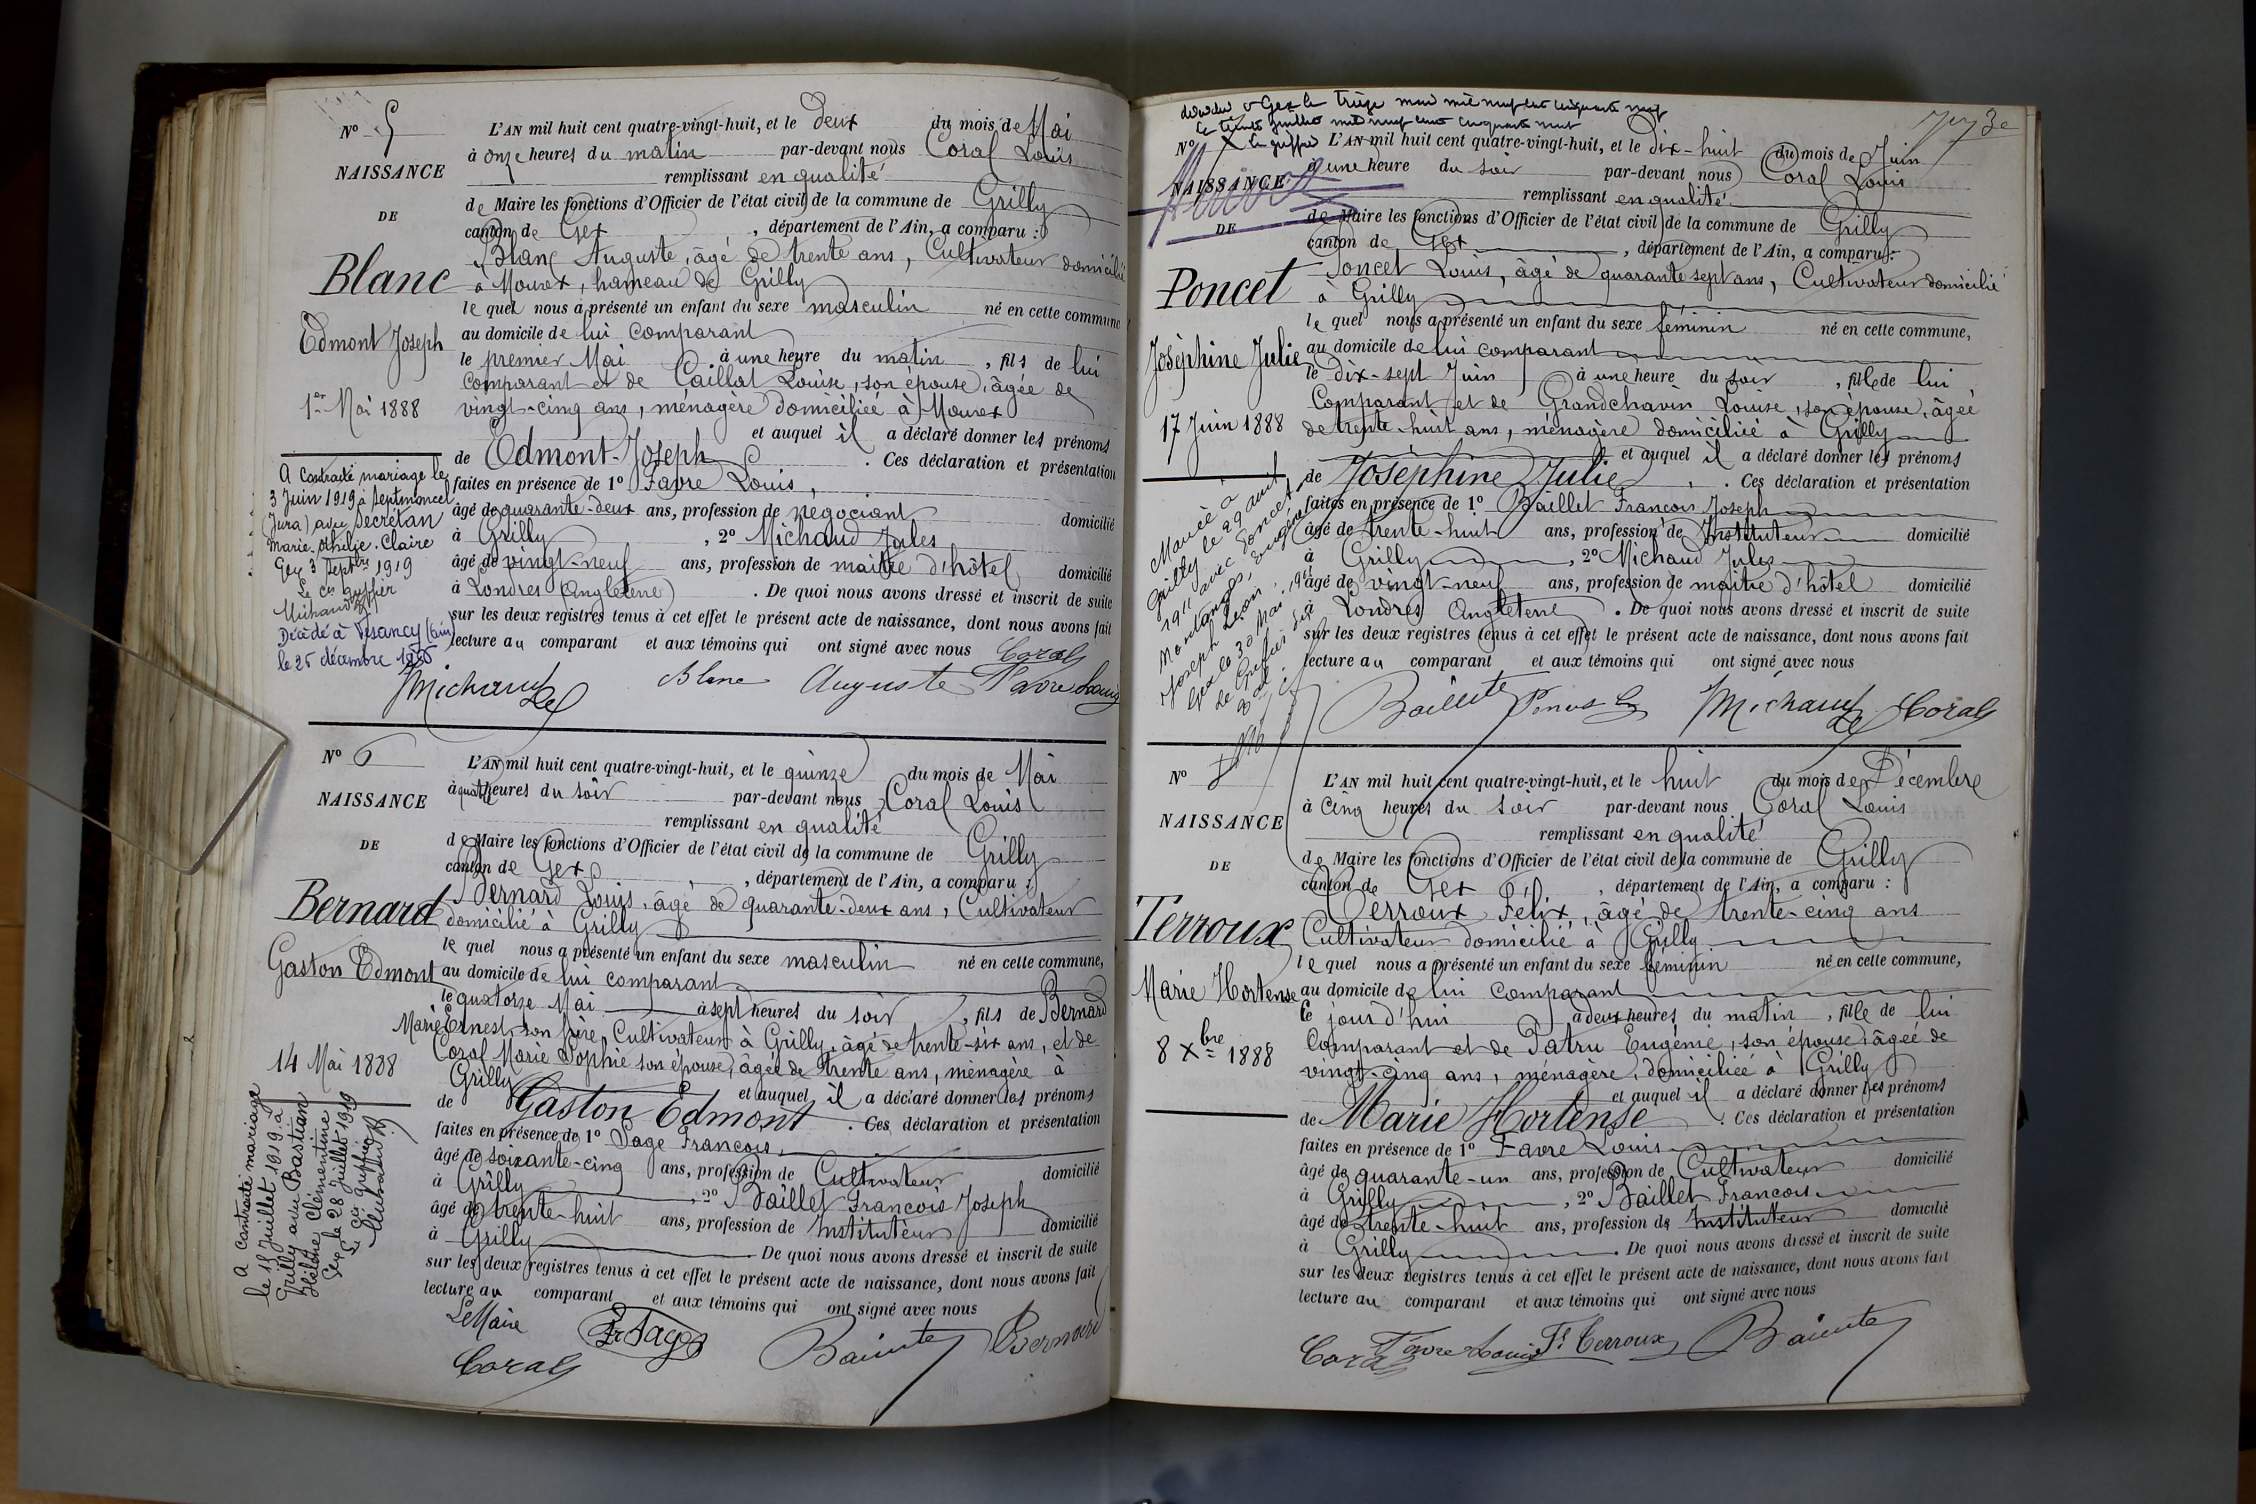 Nº 5
NAISSANCE
DE
Blanc
Edmont Joseph
1er Mai 1888
A contracté mariage le
3 Juin 1919 à Septmoncel
(Jura) avec Secrétan
Marie-Othilie-Claire
Gex 3 Septbre 1919
Le cis greffier
Décédé à Vesancy (Ain)
le 25 décembre
L'AN mil huit cent quatre-vingt-huit, et le deux du mois de Mai
à onze heures du matin par-devant nous Coral Louis
remplissant en qualité
de Maire les fonctions d'Officier de l'état civil de la commune de Grilly
canton de Gex, département de l'Ain, a comparu :
Blanc Auguste, âgé de trente ans, Cultivateur domicilié
à Mourex, hameau de Grilly
le quel nous a présenté un enfant du sexe masculin né en cette commune
au domicile de lui comparant
le premier Mai à une heure du matin, fils de lui
comparant et de Caillat Louise, son épouse, âgée de
vingt-cinq ans, ménagère domiciliée à Mourex
et auquel il a déclaré donner les prénoms
de Edmont-Joseph. Ces déclaration et présentation
faites en présence de 1º Favre Louis,
âgé de quarante-deux ans, profession de negociant domicilié
à Grilly, 2º Michaud Jules
âgé de vingt-neuf ans, profession de maitre d'hôtel domicilié
à Londres (Angleterre). De quoi nous avons dressé et inscrit de suite
sur les deux registres tenus à cet effet le présent acte de naissance, dont nous avons fait
lecture au comparant et aux témoins qui ont signé avec nous Coral
Michaud Blanc Auguste Favre Louis
Nº 6
NAISSANCE
DE
Bernard
Gaston Edmont
14 Mai 1888
A contracté mariage
le 15 Juillet 1919 à
Grilly avec Bastian
Hélène Clémentine
Gex le 28 Juillet 1919
Le cis greffier
L'AN mil huit cent quatre-vingt-huit, et le quinze du mois de Mai
à quatre heures du soir par-devant nous Coral Louis
remplissant en qualité
de Maire les fonctions d'Officier de l'état civil de la commune de Grilly
canton de Gex, département de l'Ain, a comparu :
Bernard Louis, âgé de quarante-deux ans, Cultivateur
domicilié à Grilly
le quel nous a présenté un enfant du sexe masculin né en cette commune,
au domicile de lui comparant
le quatorze Mai à sept heures du soir, fils de Bernard
Marie Ernest, son frère, Cultivateur à Grilly, âgé de trente-six ans, et de
Coral Marie Sophie son épouse, âgée de trente ans, ménagère à
Grilly et auquel il a déclaré donner les prénoms
de Gaston Edmont. Ces déclaration et présentation
faites en présence de 1º Sage François,
âgé de soixante-cinq ans, profession de Cultivateur domicilié
à Grilly, 2º Baillet François Joseph
âgé de trente-huit ans, profession de Instituteur domicilié
à Grilly De quoi nous avons dressé et inscrit de suite
sur les deux registres tenus à cet effet le présent acte de naissance, dont nous avons fait
lecture au comparant et aux témoins qui ont signé avec nous
Le Maire
Coral Fr Sage Baillet Bernard
décédée à Gex le treize mai mil neuf cent cinquante neuf
mil neuf cent cinquante neuf
Nº
NAISSANCE
DE
Poncet
Joséphine Julie
17 Juin 1888
Mariée à
Grilly le 29 avril
1911 avec Poncet
Joseph Léon
Gex le 30 Mai
Le Greffier
L'AN mil huit cent quatre-vingt-huit, et le dix-huit du mois de Juin
à une heure du soir par-devant nous Coral Louis
remplissant en qualité
de Maire les fonctions d'Officier de l'état civil de la commune de Grilly
canton de Gex, département de l'Ain, a comparu :
Poncet Louis, âgé de quarante sept ans, Cultivateur domicilié
à Grilly
le quel nous a présenté un enfant du sexe féminin né en cette commune,
au domicile de lui comparant
le dix-sept Juin à une heure du soir, fille de lui
Comparant et de Grandchavin Louise, son épouse, âgée
de trente-huit ans, ménagère domiciliée à Grilly
et auquel il a déclaré donner les prénoms
de Joséphine Julie. Ces déclaration et présentation
faites en présence de 1º Baillet François Joseph
âgé de trente-huit ans, profession de Instituteur domicilié
à Grilly, 2º Michaud Jules
âgé de vingt-neuf ans, profession de maitre d'hôtel domicilié
à Londres Angleterre. De quoi nous avons dressé et inscrit de suite
sur les deux registres tenus à cet effet le présent acte de naissance, dont nous avons fait
lecture au comparant et aux témoins qui ont signé avec nous
Baillet Michaud Coral
Nº 8
NAISSANCE
DE
Terroux
Marie Hortense
8 Xbre 1888
L'AN mil huit cent quatre-vingt-huit, et le huit du mois de Décembre
à cinq heures du soir par-devant nous Coral Louis
remplissant en qualité
de Maire les fonctions d'Officier de l'état civil de la commune de Grilly
canton de Gex, département de l'Ain, a comparu :
Terroux Félix, âgé de trente-cinq ans
Cultivateur domicilié à Grilly
le quel nous a présenté un enfant du sexe féminin né en cette commune,
au domicile de lui comparant
le jour d'hui à deux heures du matin, fille de lui
comparant et de Patru Eugénie, son épouse, âgée de
vingt-cinq ans, ménagère, domiciliée à Grilly
et auquel il a déclaré donner les prénoms
de Marie Hortense. Ces déclaration et présentation
faites en présence de 1º Favre Louis
âgé de quarante-un ans, profession de Cultivateur domicilié
à Grilly, 2º Baillet François
âgé de trente-huit ans, profession de Instituteur domicilié
à Grilly. De quoi nous avons dressé et inscrit de suite
sur les deux registres tenus à cet effet le présent acte de naissance, dont nous avons fait
lecture au comparant et aux témoins qui ont signé avec nous
Coral Favre Louis Fx Terroux Baillet